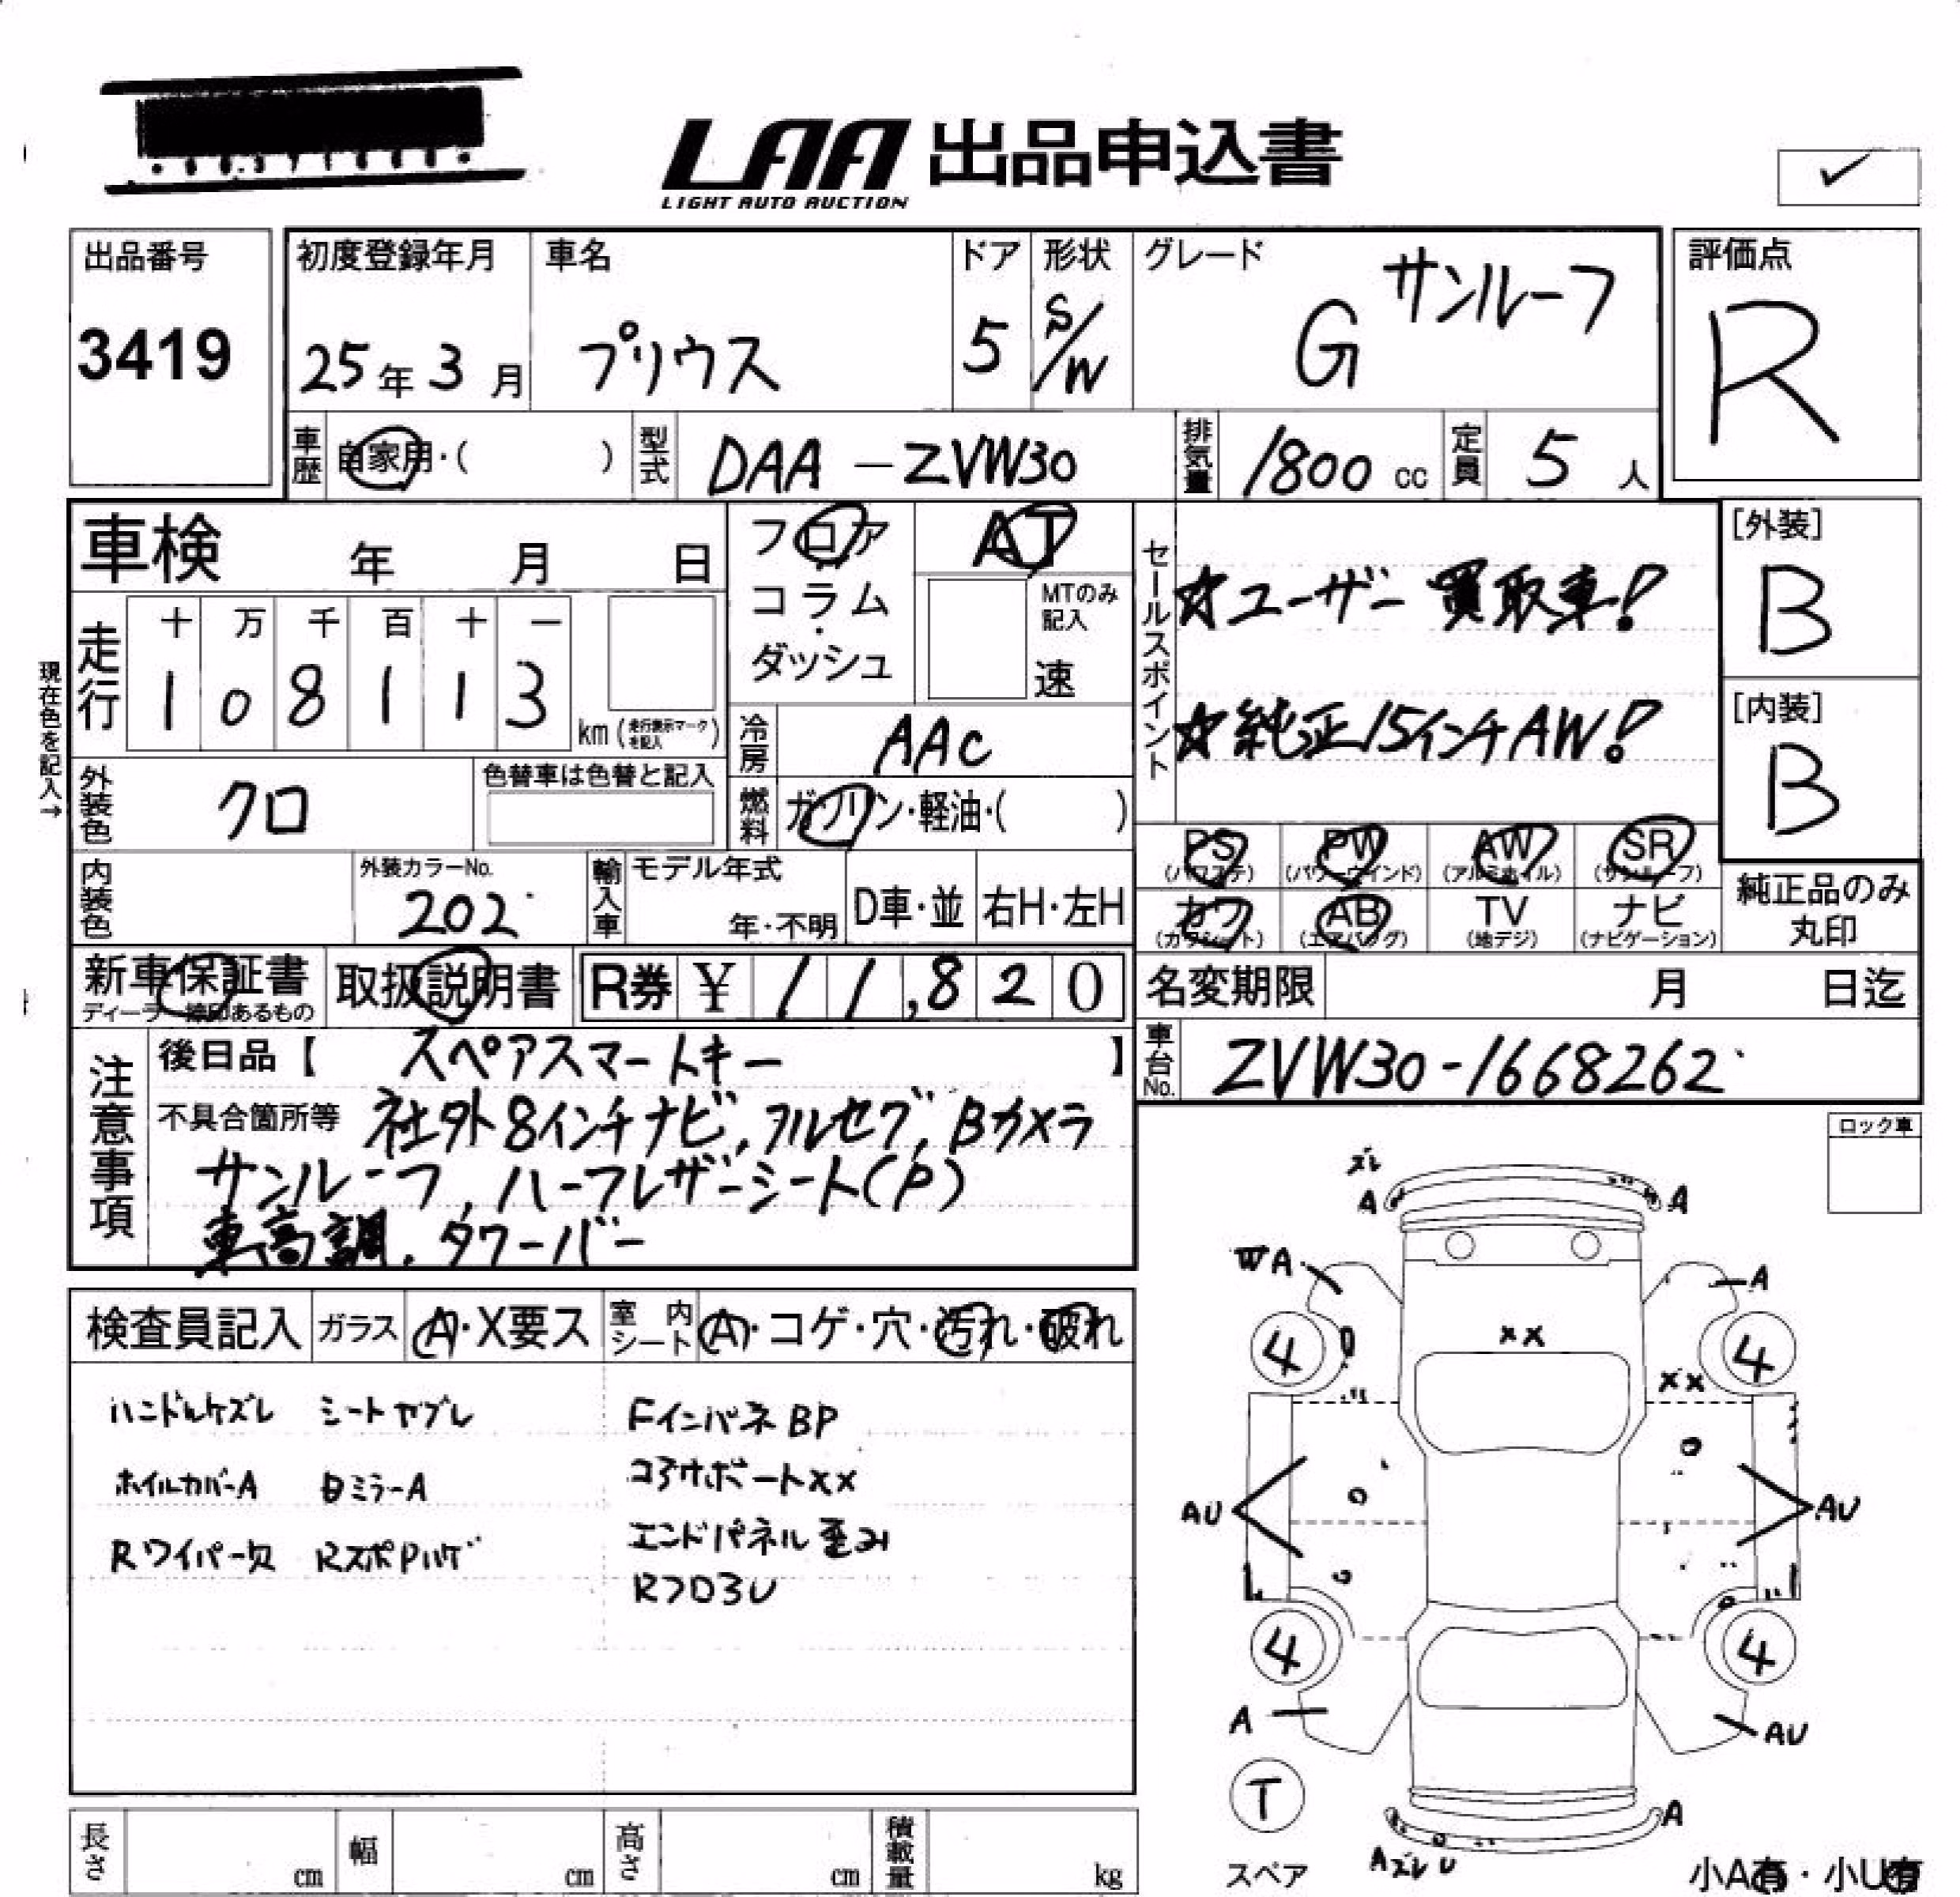 LAA 出品申込書
LIGHT AUTO AUCTION
✓
出品番号
3419
初度登録年月
25年 3月
車名
プリウス
ドア
5
形状
S/W
グレード
G サンルーフ
評価点
R
車歴
自家用・( )
型式
DAA-ZVW30
排気量
1800 cc
定員
5 人
車検 年 月 日
フロア
コラム
・
ダッシュ
AT
MTのみ記入
速
セールスポイント
☆ユーザー買取車!
☆純正15インチAW!
[外装]
B
[内装]
B
現在色を記入→
走行
十 万 千 百 十 一
1 0 8 1 1 3
km (走行表示マークを記入)
冷房
AAC
外装色
クロ
色替車は色替と記入
燃料
ガソリン・軽油・( )
PS (パワステ)
PW (パワーウインド)
AW (アルミホイル)
SR (サンルーフ)
カワ (カワシート)
AB (エアバッグ)
TV (地デジ)
ナビ (ナビゲーション)
純正品のみ
丸印
内装色
外装カラーNo.
202
輸入車
モデル年式
年・不明
D車・並
右H・左H
新車保証書
取扱説明書
R券 ¥ 11,820
名変期限 月 日迄
車台No.
ZVW30-1668262
注意事項
後日品【 スペアスマートキー 】
不具合箇所等 社外8インチナビ, フルセグ, Bカメラ
サンルーフ, ハーフレザーシート(P)
車高調, タワーバー
ロック車
検査員記入
ガラス
A・X要ス
室内シート
A・コゲ・穴・汚れ・破れ
ハンドルケズレ シートヤブレ FインパネBP
ホイルカバーA 日ミラーA コアサポートXX
Rワイパー欠 RスポPハゲ エンドパネル歪み
Rフロ3U
ズレ
A A
WA A
4 XX 4
XX
AU AU
4 4
A AU
T
スペア
A
AズレU
小A有・小U有
長さ cm
幅 cm
高さ cm
積載量 kg